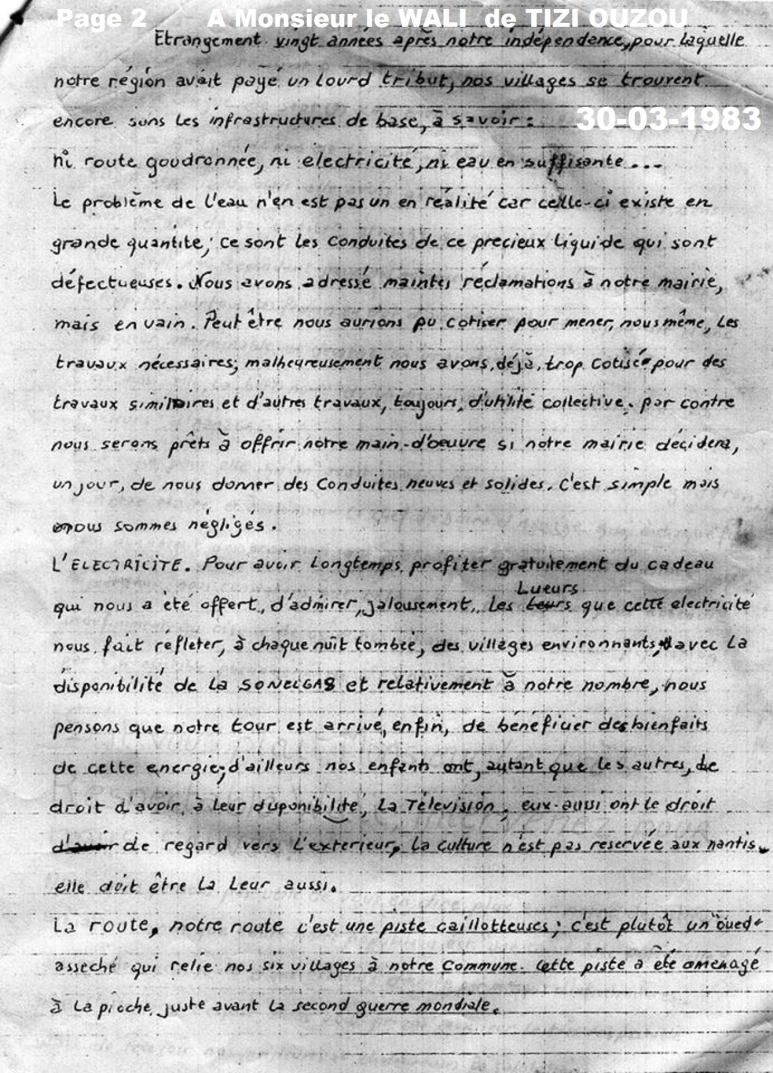 Page 2 A Monsieur le WALI de TIZI OUZOU
Etrangement vingt années après notre indépendance, pour laquelle
notre région avait payé un lourd tribut, nos villages se trouvent
encore sans les infrastructures de base, à savoir :
30-03-1983
ni route goudronnée, ni electricité, ni eau en suffisante...
Le problème de l'eau n'en est pas un en réalité car celle-ci existe en
grande quantité; ce sont les conduites de ce precieux liquide qui sont
défectueuses. Nous avons adressé maintes réclamations à notre mairie,
mais en vain. Peut être nous aurions pu cotiser pour mener, nous même, les
travaux nécessaires; malheureusement nous avons, déjà, trop cotisé pour des
travaux similaires et d'autres travaux, toujours, d'utilité collective. par contre
nous serons prêts à offrir notre main-d'oeuvre si notre mairie décidera,
un jour, de nous donner des conduites neuves et solides. C'est simple mais
nous sommes négligés.
L'ELECTRICITE. Pour avoir longtemps profiter gratuitement du cadeau
qui nous a été offert, d'admirer, jalousement, les Lueurs que cette electricité
nous fait réfleter, à chaque nuit tombée, des villèges environnants, avec la
disponibilité de la SONELGAS et relativement à notre nombre, nous
pensons que notre tour est arrivé, enfin, de bénéficier des bienfaits
de cette energie; d'ailleurs nos enfants ont, autant que les autres, le
droit d'avoir à leur disponibilité, la Télevision, eux-aussi ont le droit
de regard vers l'exterieur, la culture n'est pas reservée aux nantis.
elle doit être la leur aussi.
La route, notre route c'est une piste caillotteuses; c'est plutôt un "oued"
asseché qui relie nos six villages à notre Commune. Cette piste a été amenagé
à la pioche, juste avant la second guerre mondiale.